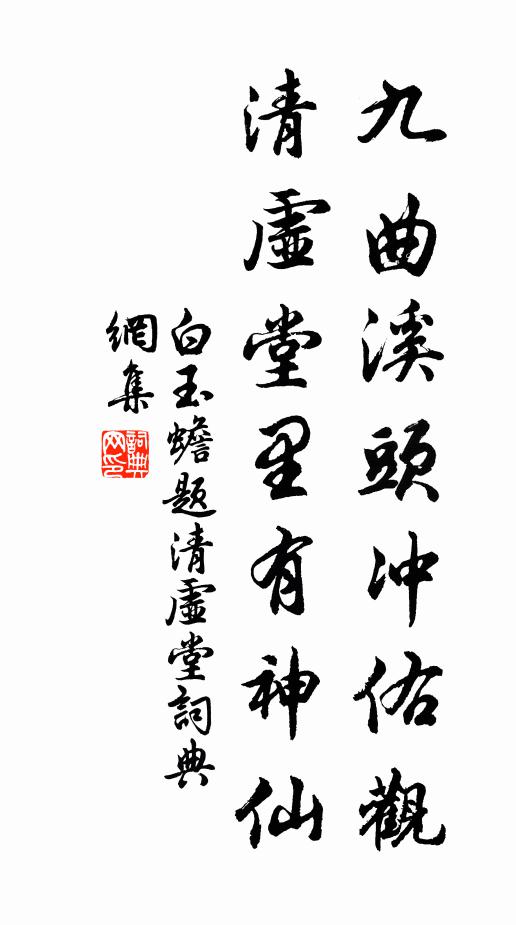 九曲溪頭冲佑觀
清虛堂里有神仙
白玉蟾题清虛堂詞典
網集
詞典網印